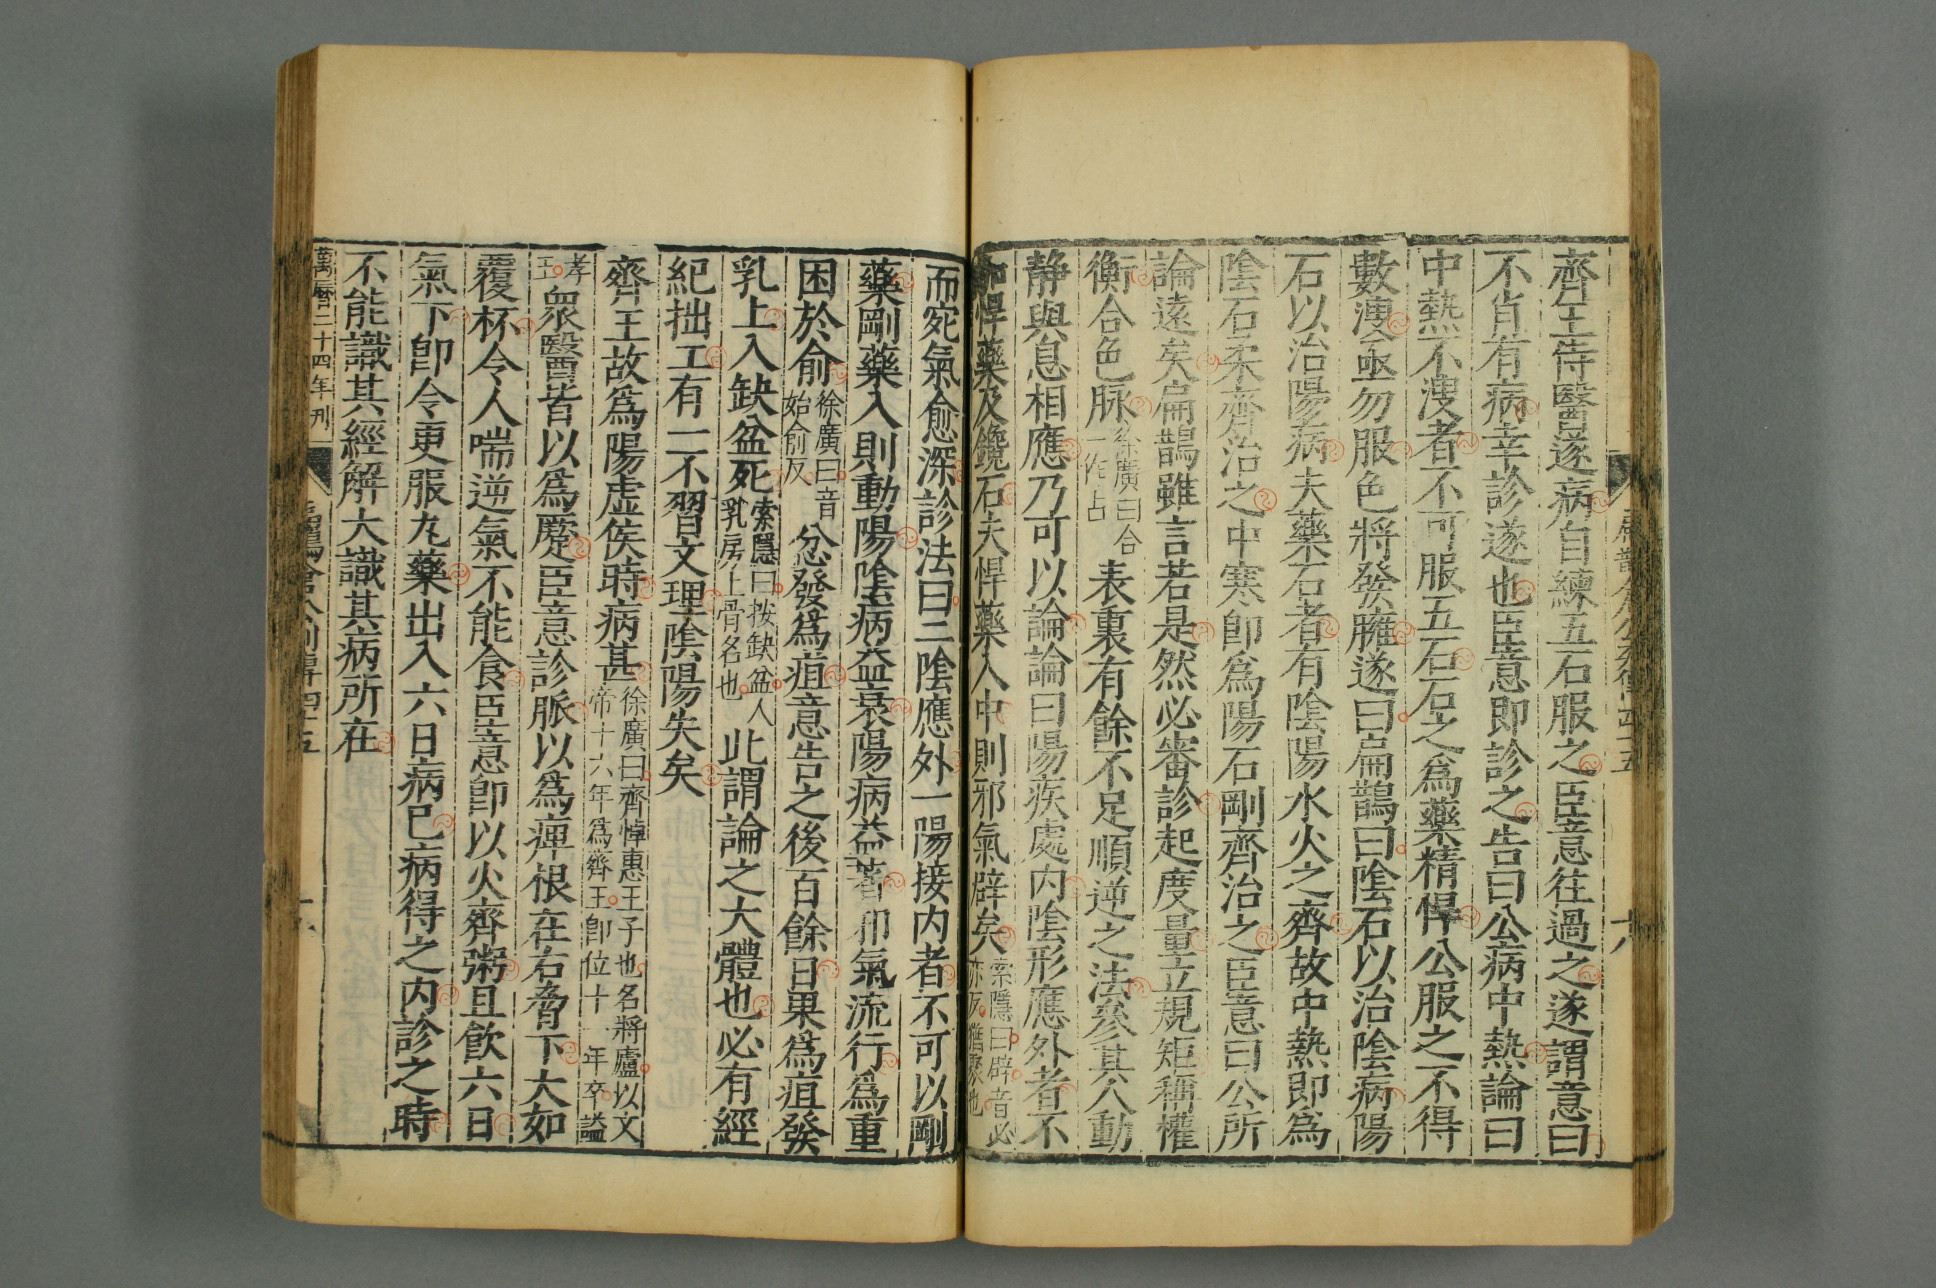 齊王侍醫遂病自練五石服之臣意往過之遂謂意曰
不肖有病幸診遂也臣意即診之告曰公病中熱論曰
中熱不溲者不可服五石石之為藥精悍公服之不得
數溲亟勿服色將發臃遂曰扁鵲曰陰石以治陰病陽
石以治陽病夫藥石者有陰陽水火之齊故中熱即為
陰石柔齊治之中寒即為陽石剛齊治之臣意曰公所
論遠矣扁鵲雖言若是然必審診起度量立規矩稱權
衡合色脉徐廣曰合一作占表裏有餘不足順逆之法參其人動
静與息相應乃可以論論曰陽疾處内陰形應外者不
加悍藥及鑱石夫悍藥入中則邪氣辟矣索隱曰辟音必亦反猶聚也
而宛氣愈深診法曰二陰應外一陽接内者不可以剛
藥剛藥入則動陽陰病益衰陽病益著邪氣流行為重
困於俞徐廣曰音始俞反忿發為疽意告之後百餘日果為疽發
乳上入缺盆死索隱曰按缺盆人乳房上骨名也此謂論之大體也必有經
紀拙工有一不習文理陰陽失矣
齊王故為陽虛侯時病甚徐廣曰齊悼惠王子也名將廬以文帝十六年為齊王即位十一年卒謚
孝王衆醫皆以為蹷臣意診脈以為痺根在右脅下大如
覆杯令人喘逆氣不能食臣意即以火齊粥且飲六日
氣下即令更服丸藥出入六日病已病得之内診之時
不能識其經解大識其病所在
萬曆二十四年刊
扁鵲倉公列傳四十五